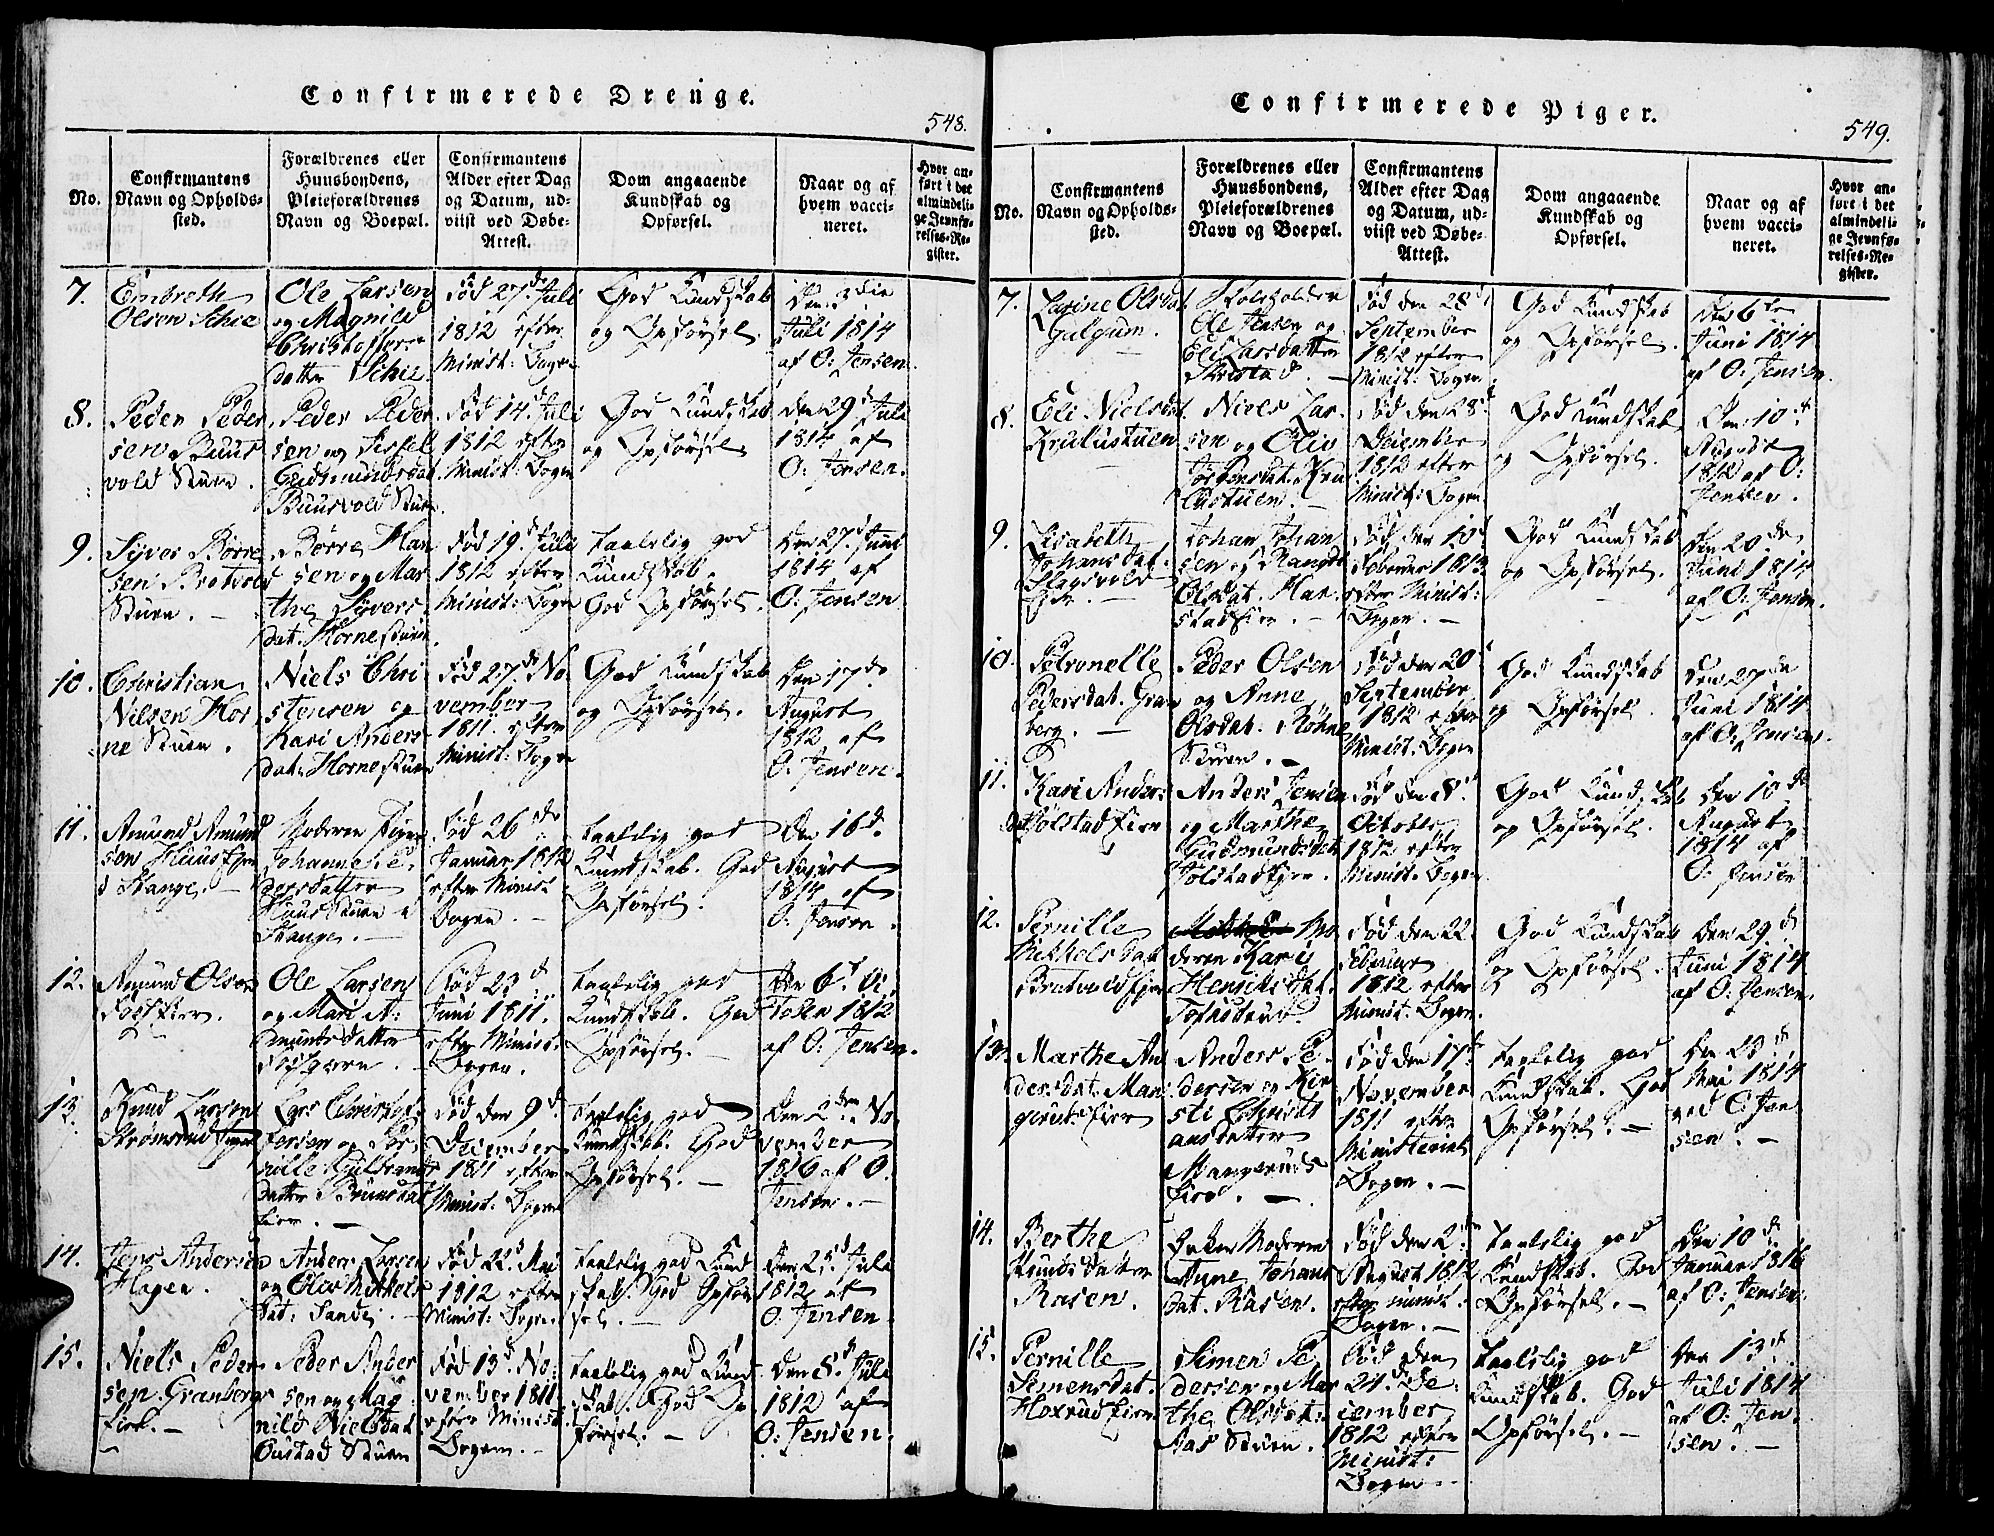 Confirmerede Drenge.
548.
No.
Confirmantens
Navn og Opholds-
sted.
Forældrenes eller
Huusbondens,
Pleieforældrenes
Navn og Boepæl.
Confirmantens
Alder efter Dag
og Datum, ud-
viist ved Døbe-
Attest.
Dom angaaende
Kundskab og
Opførsel.
Naar og af
hvem vacci-
neret.
Hvor an-
ført i det
almindeli-
ge Jevnfø-
relses-Re-
gister.
7.
Embreth
Olsen Schie
Ole Larsen
og Magnild
Christoffers-
datter Schie.
Fød 27d Juli
1812 efter
Minist: Bogen
God Kundskab
og Opførsel.
Den 3die
Juli 1814
af O: Jensen.
8.
Peder Peder
sen Buus
vold Stuen.
Peder Peder
sen og Sissel
Gudmundsdat
Buusvold Stuen.
Fød 14d Juli
1812 efter
Minist: Bogen
God Kundskab
og Opførsel
Den 29d Juli
1814 af
O: Jensen.
9.
Syver Børre
sen Bratvold
Stuen.
Børre Han
sen og Mar
the Syvers
dat: Horne stuen
Fød 19d Juli
1812 efter
Minist: Bogen
taalelig god
Kundskab.
God Opførsel.
Den 27d Juni
1814 af
O: Jensen
10.
Christian
Nilsen Hor
ne Stuen.
Niels Chri
stensen og
Kari Anders
dat: Horne stuen
Fød 27d No
vember
1811 efter
Minist: Bogen
God Kundskab
og Opførsel.
Den 17de
August
1812 af
O: Jensen.
11.
Amund Amund
sen Huus Ejer
Stange.
Moderen
Johanne Pe
dersdatter
Huus Stuen
Stange.
Fød 26de
Januar 1812
efter Minist
Bogen.
taalelig god
Kundskab. God
Opførsel.
Den 16d.
August
1814 af
O: Jensen.
12.
Amund Olsen
Ole Larsen
og Mari A:
munds datter
Fød 23d
Juni 1811.
efter Minist.
Bogen.
taalelig god
Kundskab. God
Opførsel.
Den 6d Oc
tober 1812
af O: Jensen.
13.
Knud Larsen
Lars Christof
fersen og Per
nille Guldbrands
datter
Fød den 9d.
December
1811 efter
Minist. Bogen
taalelig god
Kundskab. God
Opførsel.
Den 2den No
vember
1816 af O.
Jensen.
14.
Jens Andersen
Hagen.
Anders Larsen
og Olia Mikkels
dat: Sande.
Fød 22d Mai
1812 efter
Minist: Bogen.
taalelig god Kund
skab. God Opfør
sel.
Den 25d Juli
1812 af
O: Jensen
15.
Niels Peder
sen Granberg
Peder Ander
sen og Mag
nild Nielsdat
Gustad Stuen
Fød 13d. No:
vember 1811
efter Minist:
Bogen.
taalelig god Kund
skab. God Op
førsel.
Den 8d Juli
1812 af
O: Jensen.
Confirmerede Piger.
549.
No.
Confirmantens
Navn og Opholds-
sted.
Forældrenes eller
Huusbondens,
Pleieforældrenes
Navn og Boepæl.
Confirmantens
Alder efter Dag
og Datum, ud-
viist ved Døbe-
Attest.
Dom angaaende
Kundskab og
Opførsel.
Naar og af
hvem vacci-
neret.
Hvor an-
ført i det
almindeli-
ge Jevnfø-
relses-Re-
gister.
7.
Karine Olsdat
Gulgum.
Skoleholder
Ole Jensen og
Eli Larsdatter
Fød den 28d
September
1812 efter
Minist: Bogen
God Kundskab
og Opførsel.
Den 6te
Juni 1814
af O: Jensen.
8.
Eli Nielsdat.
Niels Lar
sen og Olia
Fød den 28d
December
1812 efter
Minist: Bogen
God Kundskab
og Opførsel.
Den 10d
August
1812 af O:
Jensen.
9.
Lisabeth
Johansdat.
Johan Johan
sen og
Olsdat. Har
stad Eier.
Fød den 10d
Februar 1813
efter Minist:
Bogen.
God Kundskab
og Opførsel.
Den 20den
Juni 1814
af O: Jensen.
10.
Petronelle
Pedersdat. Gran
berg.
Peder Olsen
og Anne
Olsdat. Røhne
Stuen.
Fød den 20d
September
1812 efter
Minist. Bogen
God Kundskab
og Opførsel.
Den 27de
Juni 1814
af O: Jensen.
11.
Kari Anders
dat Tølstad Eier
Anders Jensen
og Marthe
Gudmundsdat
Tølstad Ejer.
Fød den 8d.
October
1812 efter
Minist. Bogen.
God Kundskab
og Opførsel.
Den 10de
August
1814 af
O: Jensen
12.
Pernille
Mikkelsdat
Bratvold Ejer
Mo
deren Kari
Henriksdat.
Fød den 22
Februar
1812 efter
Minist. Bogen.
God Kundskab
og Opførsel.
Den 29d
Juni 1814
af O: Jensen.
13.
Marthe An
dersdat. Man
gerud Eier
Anders Pe
dersen og Kir
sti Christi
ansdatter
Mangeruds
Eier.
Fød den 17de
November
1811 efter
Ministerial
Bogen.
taalelig god
Kundskab. God
Opførsel.
Den 23d
Mai 1814
ved O: Jen
sen.
14.
Berthe
Knudsdatter
Rasen.
Enken Moderen
Anne Johans
dat. Rasen.
Fød den 2den
August 1812
efter Minist:
Bogen.
taalelig god
Kundskab. God
Opførsel.
Den 10d
Januar 1816
af O: Jensen.
15.
Pernille
Semensdat.
Hoxrud Eier
Simen Pe
dersen og Mar
the Olsdat:
Aas Stuen.
Fød den
24d De
cember
1812 efter
Minist:
Bogen
taalelig god
Kundskab. God
Opførsel.
Den 13d
Juli 1814
af O: Jen
sen.